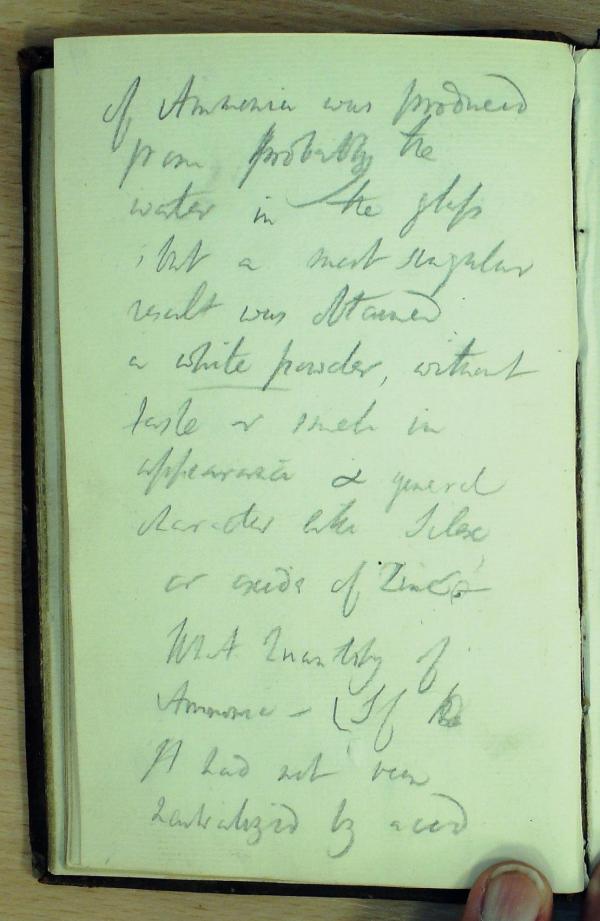 of Ammonia was produced
from probably the
water in the glass
; but a most singular
result was obtained
a white powder, without
taste or smell in
appearance & general
character like Silex,
or oxide of Zinc
What Quantity of
Ammonia - (If
it had not been
neutralized by acid